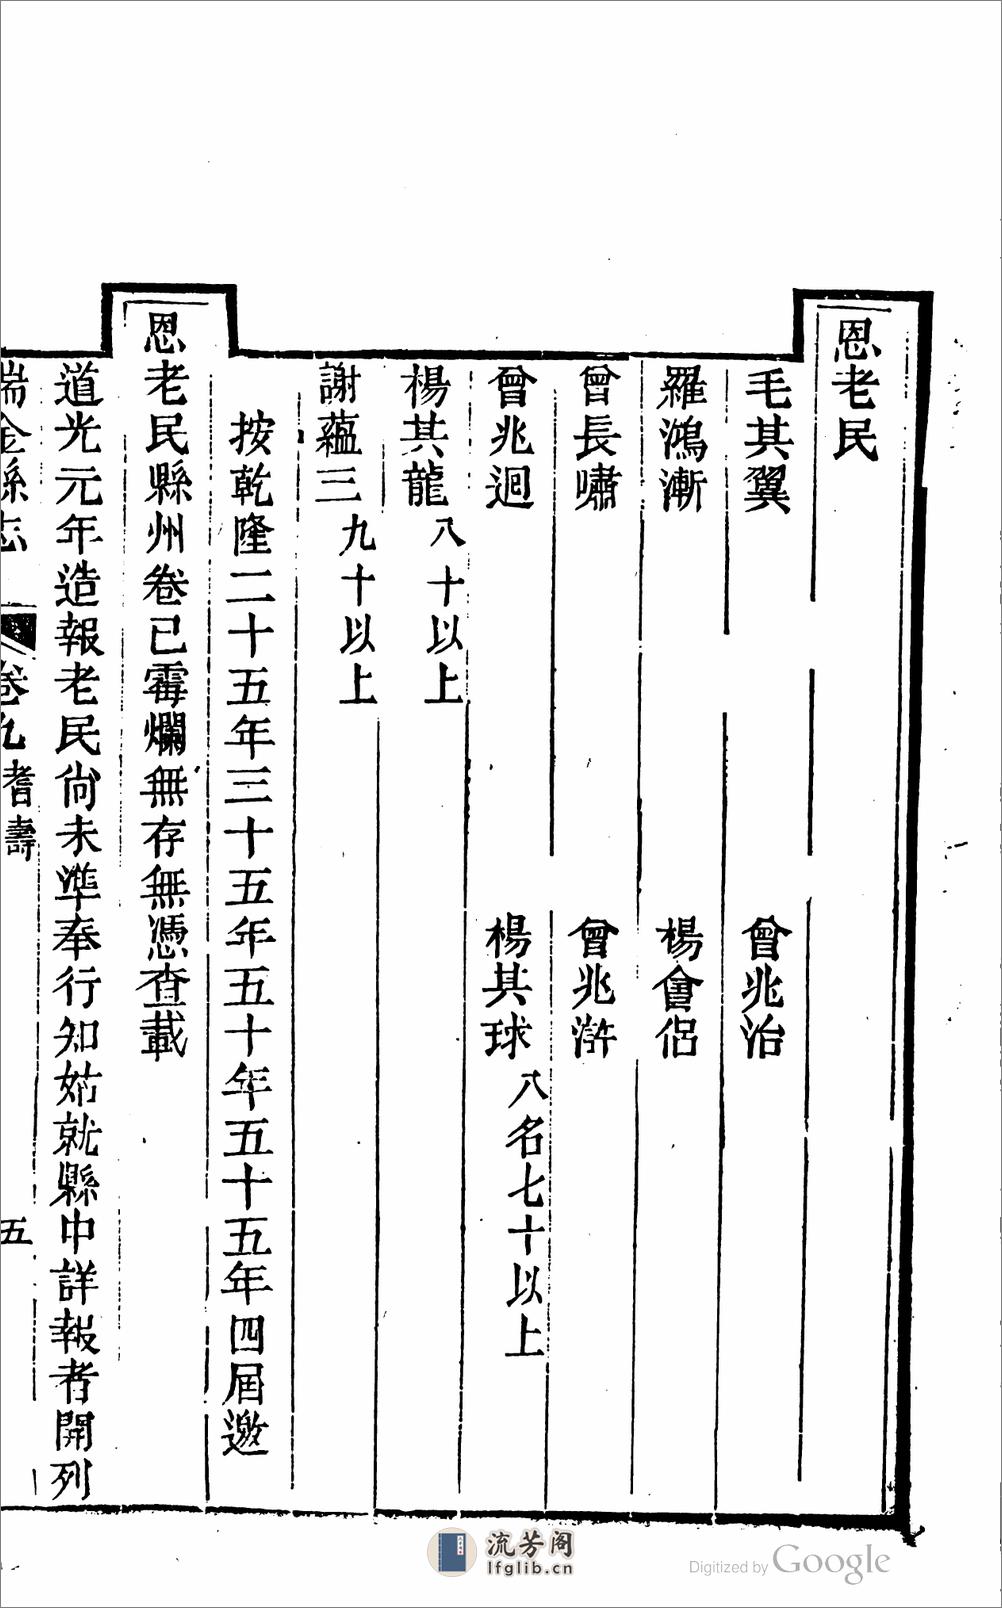 恩老民
毛其翼　曾兆治
羅鴻漸　楊會侣
曾長嘯　曾兆澣
曾兆迥　楊其球 八名七十以上
楊其龍 八十以上
謝蘊三 九十以上
按乾隆二十五年三十五年五十年五十五年四屆邀
恩老民縣州卷已霉爛無存無憑查載
道光元年造報老民尙未準奉行知姑就縣中詳報者開列
瑞金縣志　卷九 耆壽　五
流芳阁
lfglib.cn
Digitized by Google